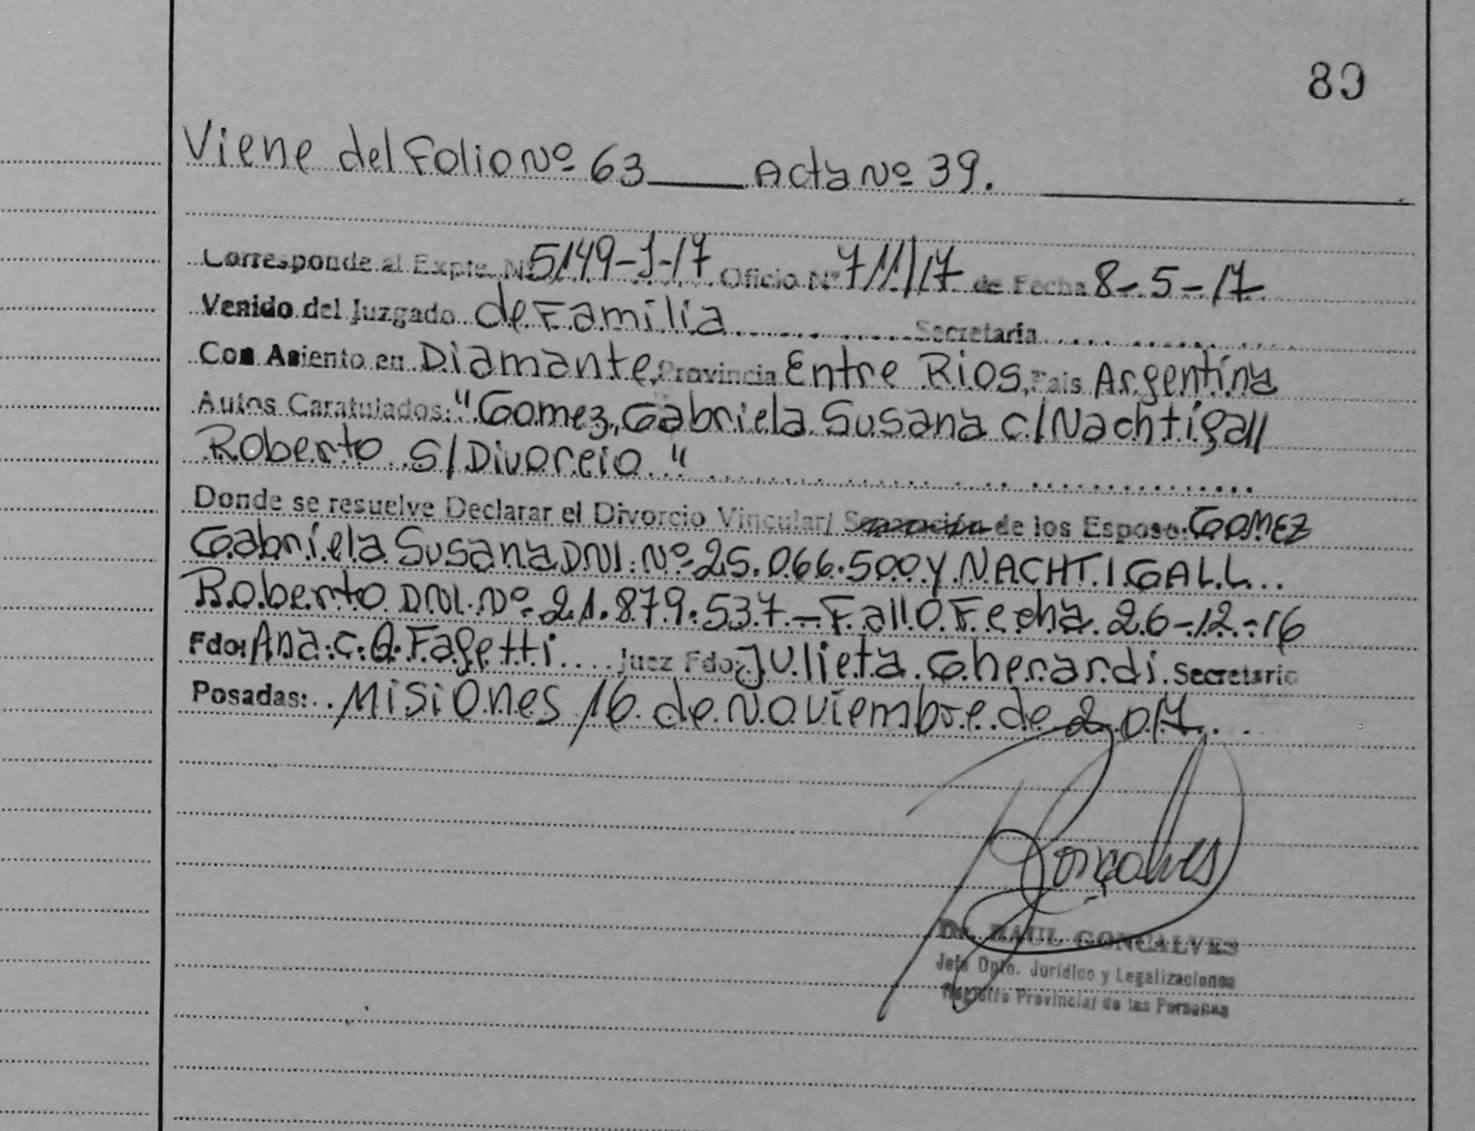 89
Viene del Folio Nº 63 Acta Nº 39.
Corresponde al Expte. Nº 5149-J-17 Oficio Nº 711/17 de Fecha 8-5-17
Venido del Juzgado de Familia Secretaria
Con Asiento en Diamante, Provincia Entre Rios, Pais Argentina
Autos Caratulados: "Gomez, Gabriela Susana c/Nachtigall
Roberto S/Divorcio"
Donde se resuelve Declarar el Divorcio Vincular/ Separación de los Esposo: GOMEZ
Gabriela Susana DNI. Nº 25.066.500 Y NACHTIGALL
Roberto DNI. Nº 21.879.537 - Fallo Fecha 26-12-16
Fdo: Ana. C. Q. Fagetti Juez Fdo: Julieta Gherardi. Secretario
Posadas: Misiones 16 de Noviembre de 2.017
Gonçalves
Dr. RAUL GONCALVES
Jefe Dpto. Jurídico y Legalizaciones
Registro Provincial de las Personas